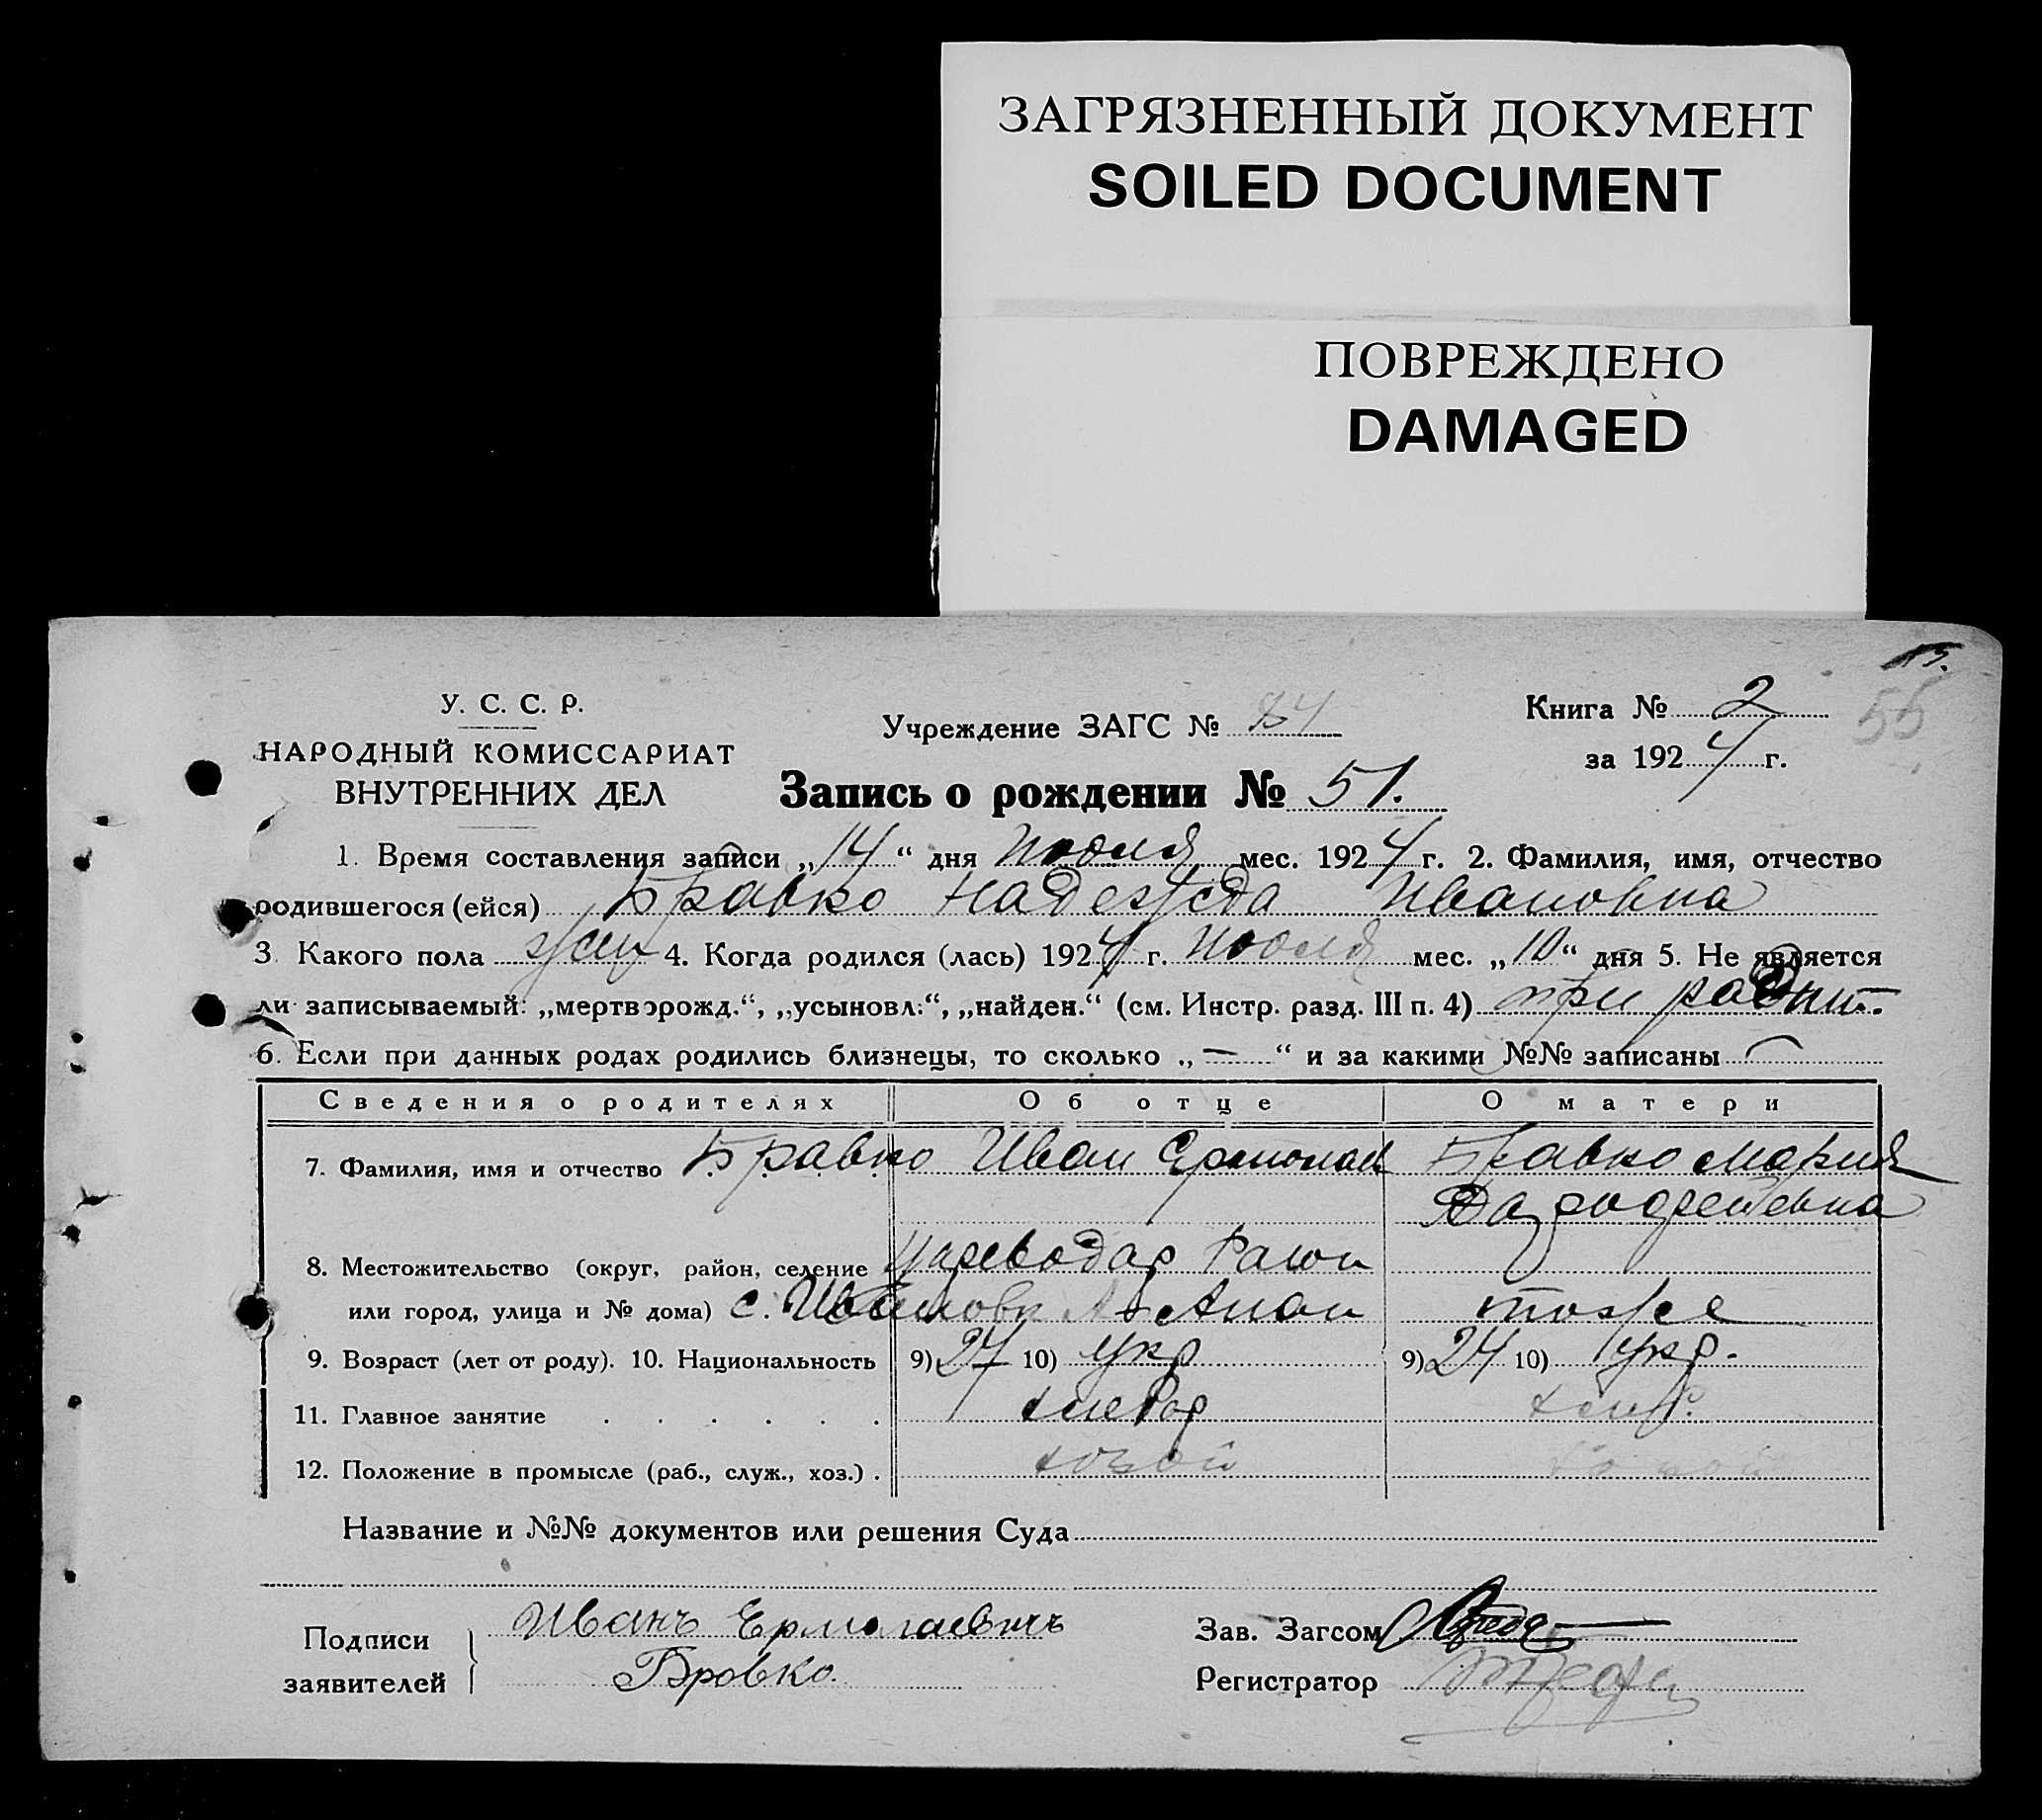 ЗАГРЯЗНЕННЫЙ ДОКУМЕНТ
SOILED DOCUMENT
ПОВРЕЖДЕНО
DAMAGED
55
У. С. С. Р.
НАРОДНЫЙ КОМИССАРИАТ
ВНУТРЕННИХ ДЕЛ
Учреждение ЗАГС №
Книга № 2
за 1924 г.
Запись о рождении № 51.
1. Время составления записи „14“ дня Июля мес. 1924 г. 2. Фамилия, имя, отчество
родившегося (ейся) Бравко Надежда Ивановна
3. Какого пола жен 4. Когда родился (лась) 1924 г. Июля мес. „10“ дня 5. Не является
ли записываемый: „мертворожд.“, „усыновл.“, „найден.“ (см. Инстр. разд. III п. 4) при
6. Если при данных родах родились близнецы, то сколько „—“ и за какими №№ записаны —
Сведения о родителях Об отце О матери
7. Фамилия, имя и отчество Бравко Иван Бравко Мария
8. Местожительство (округ, район, селение
или город, улица и № дома) с. тоже
9. Возраст (лет от роду). 10. Национальность 9) 27 10) укр 9) 24 10) укр.
11. Главное занятие хлебор
12. Положение в промысле (раб., служ., хоз.) .
Название и №№ документов или решения Суда
Подписи
заявителей
Иванъ Ермолаевичъ
Бровко.
Зав. Загсом
Регистратор